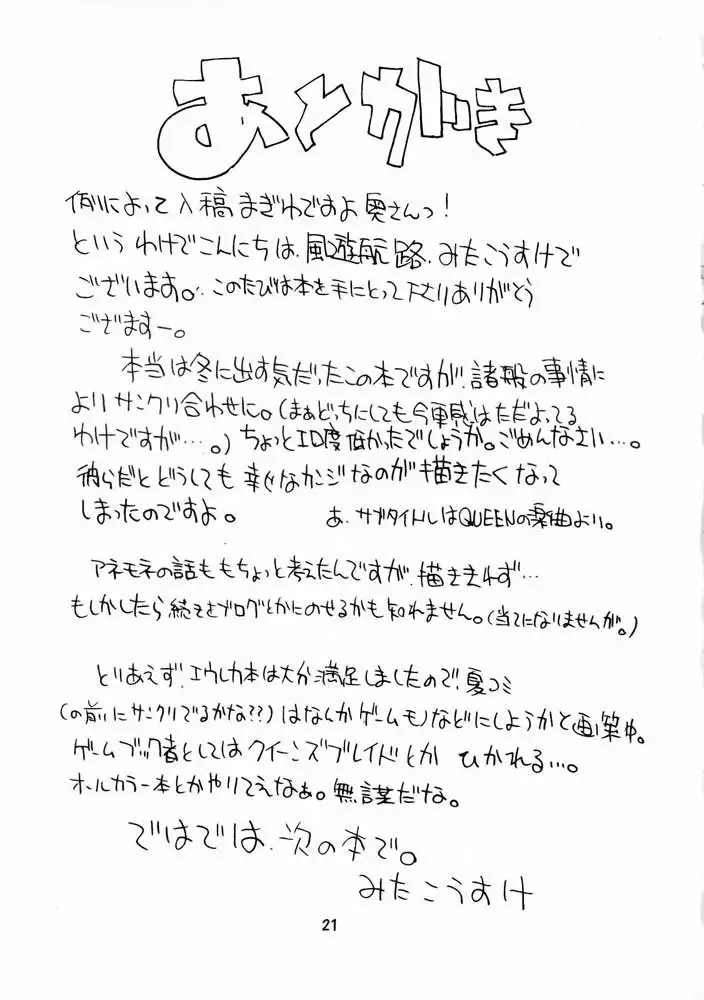 あとがき
例によって入稿まぎわですよ奥さんっ！
というわけでこんにちは、風遊航路、みたこうすけで
ございます。このたびは本を手にとって下さりありがとう
ござますー。
本当は冬に出す気だったこの本ですが、諸般の事情に
よりサンクリ合わせに。(まぁどっちにしても今更感はただよってる
わけですが…。)ちょっとエロ度低かったでしょうか。ごめんなさい…。
彼らだとどうしても幸せなカンジなのが描きたくなって
しまったのですよ。 あ、サブタイトルはQUEENの楽曲より。
アネモネの話ももちょっと考えたんですが、描ききれず…
もしかしたら続きをブログとかにのせるかも知れません。(当てになりませんが。)
とりあえず、エウレカ本は大分満足しましたので、夏コミ
(の前にサンクリでるかな??)はなんかゲームモノなどにしようかと画策中。
ゲームブック者としてはクイーンズブレイドとか ひかれる…。
オールカラー本とかやりてえなぁ。無謀だな。
ではでは、次の本で。
みたこうすけ
21